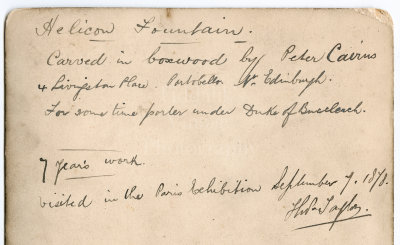 Helicon Fountain.
Carved in boxwood by Peter Cairns
4 Livingston Place. Portobello Nr. Edinburgh.
For some time porter under Duke of Buccleuch.
7 years work.
visited in the Paris Exhibition September 7. 1878.
Thos. Taylor.